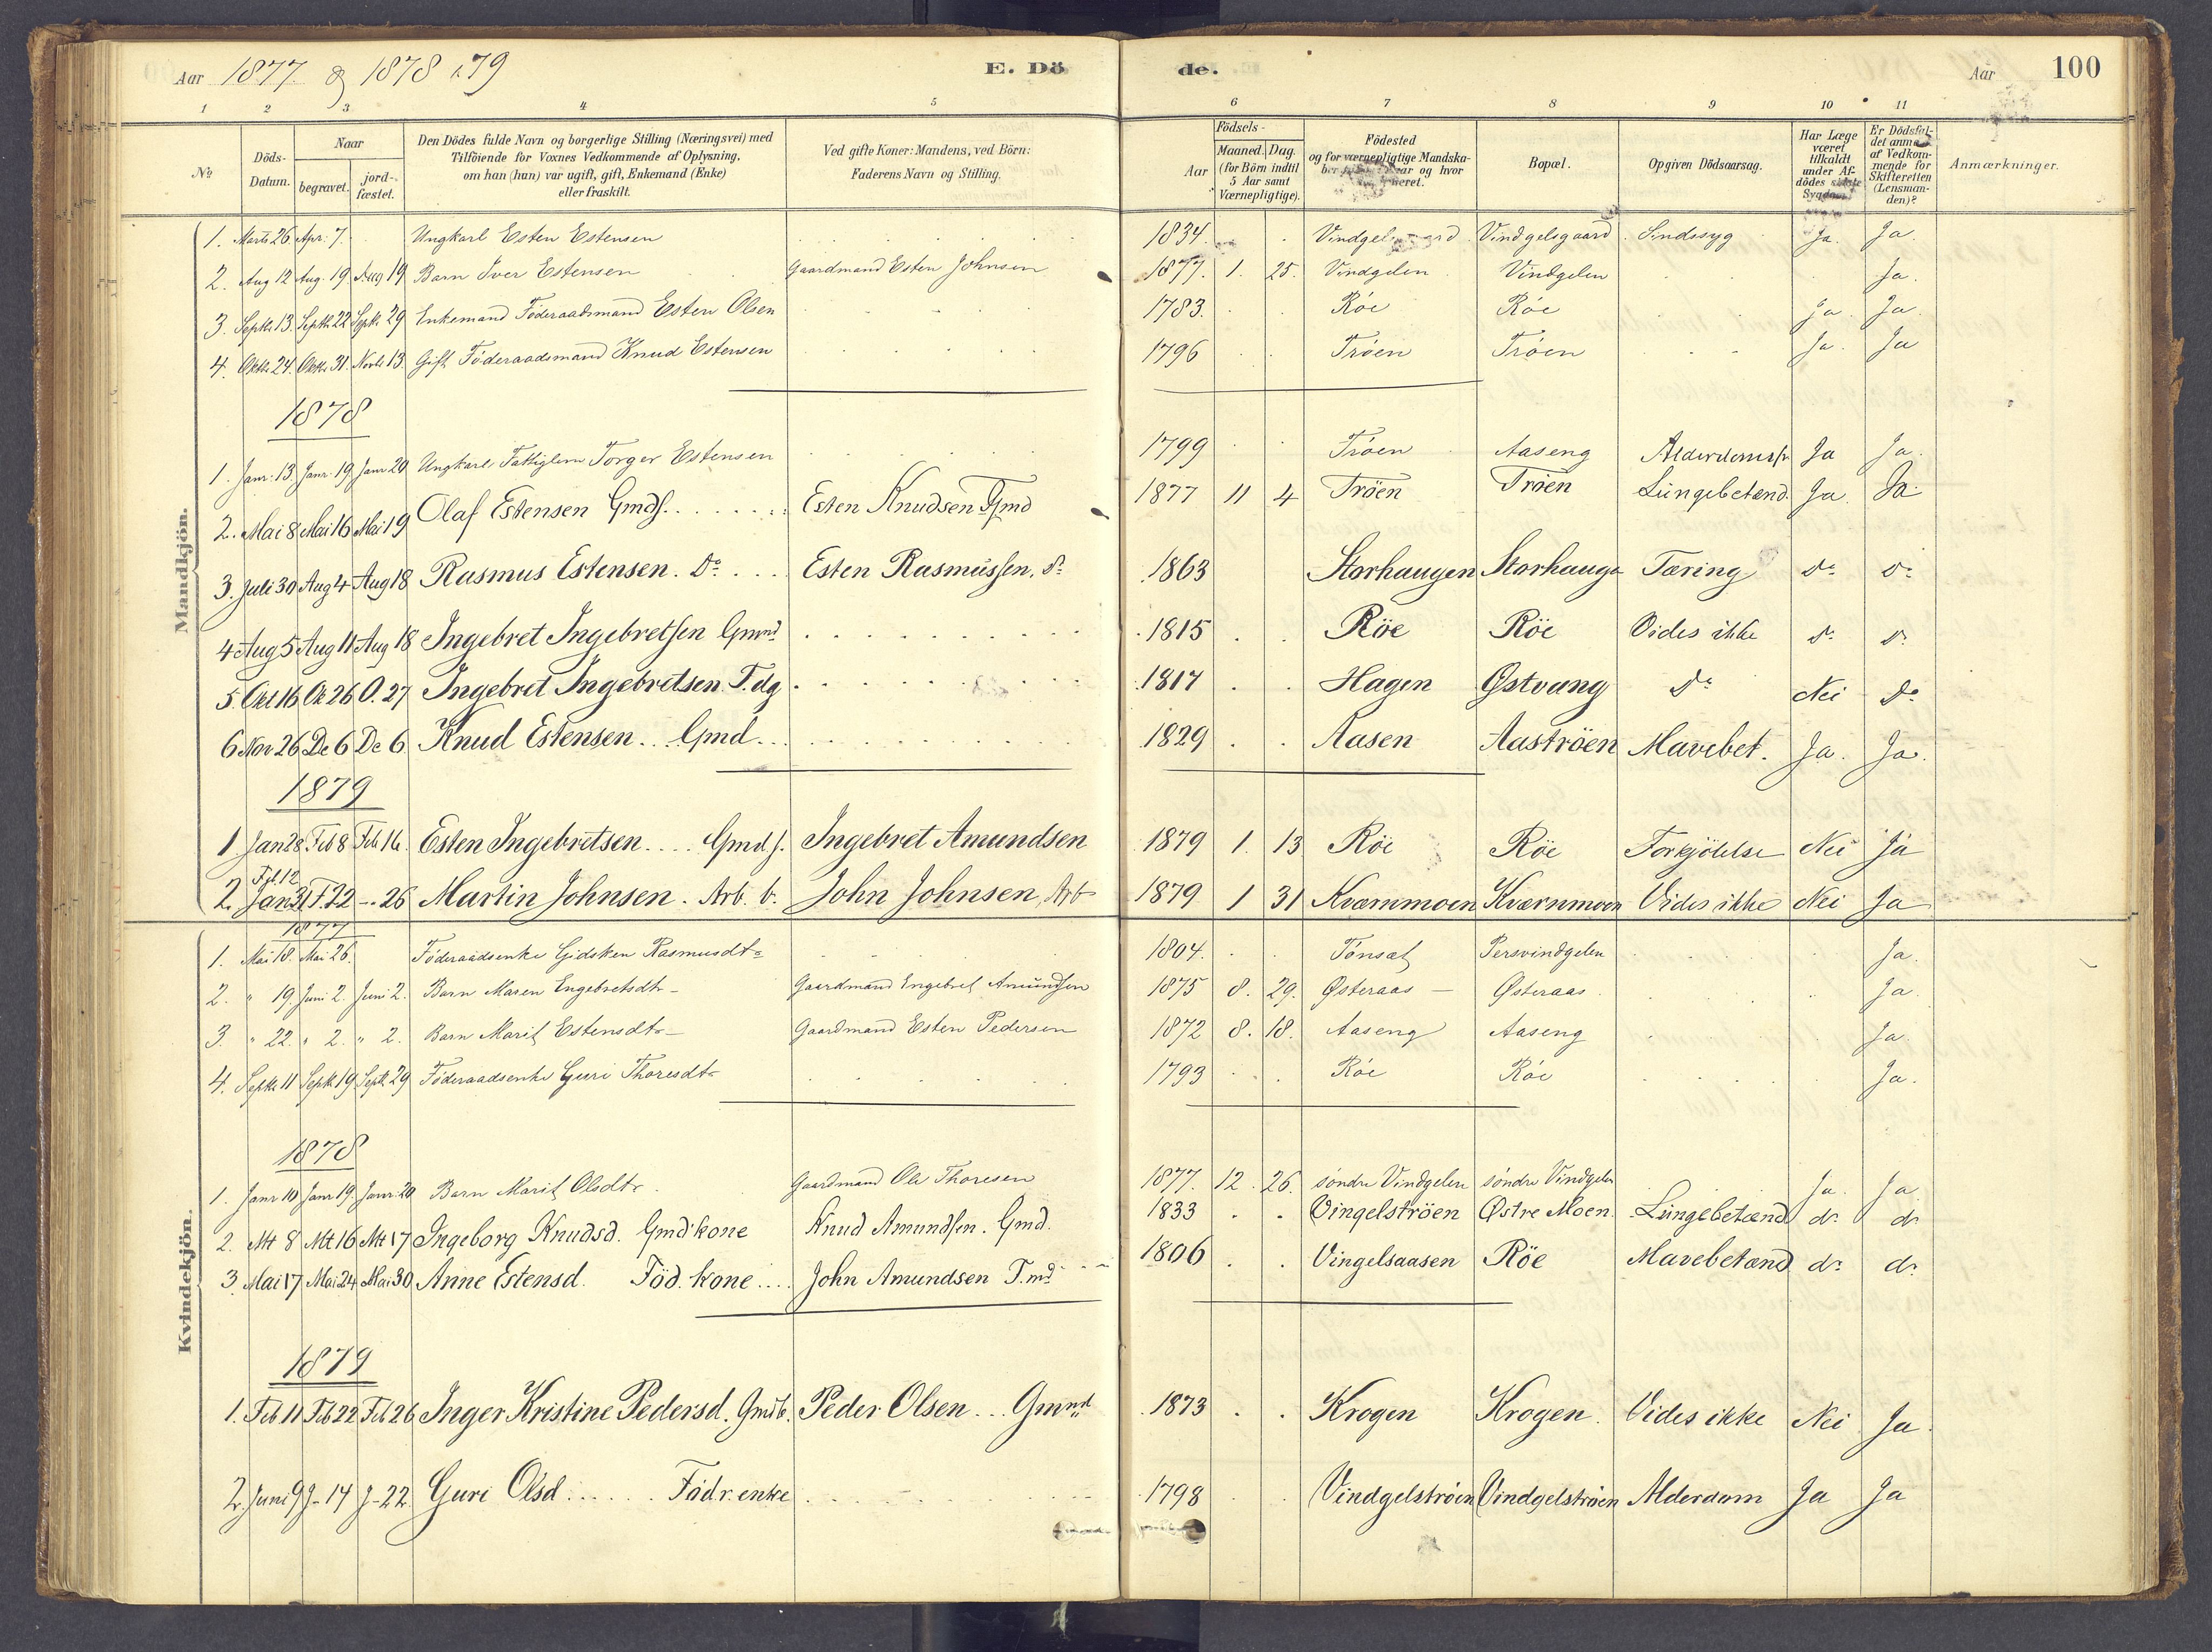 Aar 1877 & 1878 & 79 E. Dö de. Aar 100
1 2 3 4 5 6 7 8 9 10 11
No Döds-Datum. Naar begravet. jord-fæstet. Den Dödes fulde Navn og borgerlige Stilling (Næringsvei) med Tilföiende for Voxnes Vedkommende af Oplysning, om han (hun) var ugift, gift, Enkemand (Enke) eller fraskilt. Ved gifte Koner: Mandens, ved Börn: Faderens Navn og Stilling. Födsels- Aar Maaned. Dag. (for Börn indtil 5 Aar samt Værnepligtige). Födested og for værnepligtige Mandska- Bopæl. Opgiven Dödsaarsag. Har Læge været tilkaldt under Af-dödes sidste Sygdom Er Dödsfal-det anmeldt af Vedkom-mende for Skifteretten (Lensman-den)? Anmærkninger.
Mandkjön.
1. Marts 26. Apr. 7. Ungkarl Esten Estensen 1834. Vindgelsgaard Vindgelsgaard Sindssyg Ja. Ja.
2. Aug 12 Aug. 19. Aug 19 Barn Iver Estensen Gaardmand Esten Johnsen 1877. 1. 25. Vindgelen Vindgelen Ja.
3. Septb. 13. Septb. 22 Septb. 29 Enkemand Föderaadsmand Esten Olsen 1783. Röe Röe Ja. Ja.
4. Oktb. 24. Oktb. 31. Novb. 13. Gift Föderaadsmand Knud Estensen 1796 Tröen Tröen Ja. Ja
1878
1. Janr. 13. Janr. 19. Janr. 20 Ungkarl Fattiglem Torger Estensen 1799 Tröen Aaseng Ja Ja.
2. Mai 8 Mai 16 Mai 19 Olaf Estensen Gmds. Esten Knudsen Gmd 1877 11 4 Tröen Tröen Lungebetænd. Ja. Ja.
3. Juli 30 Aug 4 Aug 18 Rasmus Estensen. Do Esten Rasmussen. do 1863 Storhaugen Storhauge Tæring do do
4 Aug 5 Aug 11 Aug 18 Ingebret Ingebretsen Gmnd 1815 Röe Röe Vides ikke do do
5. Okt 16 Ok 26 O. 27 Ingebret Ingebretsen T. dg 1817 Hagen Østvang do Nei do
6 Nov 26 De 6 De 6. Knud Estensen... Gmd 1829 Aasen Aaströen Mavebet. Ja. Ja.
1879
1 Jan 28 Feb 8 Feb 16. Esten Ingebretsen.... Gmd s. Ingebret Amundsen 1879 1. 13 Röe Röe Forkjölelse Nei Ja
Feb. 12
2. Jan 31 F. 22 -. 26 Martin Johnsen. Arb. b. John Johnsen, Arb 1879 1 31 Kværnmoen Kværnmoen Vides ikke Nei Ja
Kvindekjön.
1877
1. Mai 18. Mai 26. Föderaadsenke Gidsken Rasmusdtr 1804. Tönset Persvindgelen Ja.
2. " 19. Juni 2. Juni 2. Barn Maren Engebretsdtr Gaardmand Engebret Amundsen 1875 8. 29. Østeraas Østeraas Ja
3. " 22. " 2. " 2. Barn Marit Estensdtr Gaardmand Esten Pedersen 1872 8. 18. Aaseng Aaseng Ja.
4. Septb. 11 Septb. 19 Septb. 29 Föderaadsenke Guri Thoresdtr 1793 Röe Röe Ja.
1878
1. Janr 10 Janr 19. Janr. 20 Barn Marit Olsdtr. Gaardmand Ole Thoresen 1877. 12. 26. söndre Vindgelen söndre Vindgelen Ja. Ja
2. Mt 8 Mt 16 Mt 17 Ingeborg Knudsd. Gmd kone Knud Amundsen. Gmd. 1833 Vingelströen Østre Moen. Lungebetænd do do
3. Mai 17 Mai 24 Mai 30 Anne Estensd. Föd. kone.... John Amundsen F.md 1806 Vingelsaasen Röe Mavebetænd do do
1879
1. Feb 11 Feb 22 Feb 26 Inger Kristine Pedersd. Gmd b. Peder Olsen... Gmnd 1873 Krogen Krogen. Vides ikke Nei Ja.
2. Juni 9 J- 14 J- 22. Guri Olsd...... Född r. enke 1798 Vindgelströen Vindgelströen Alderdom Ja Ja